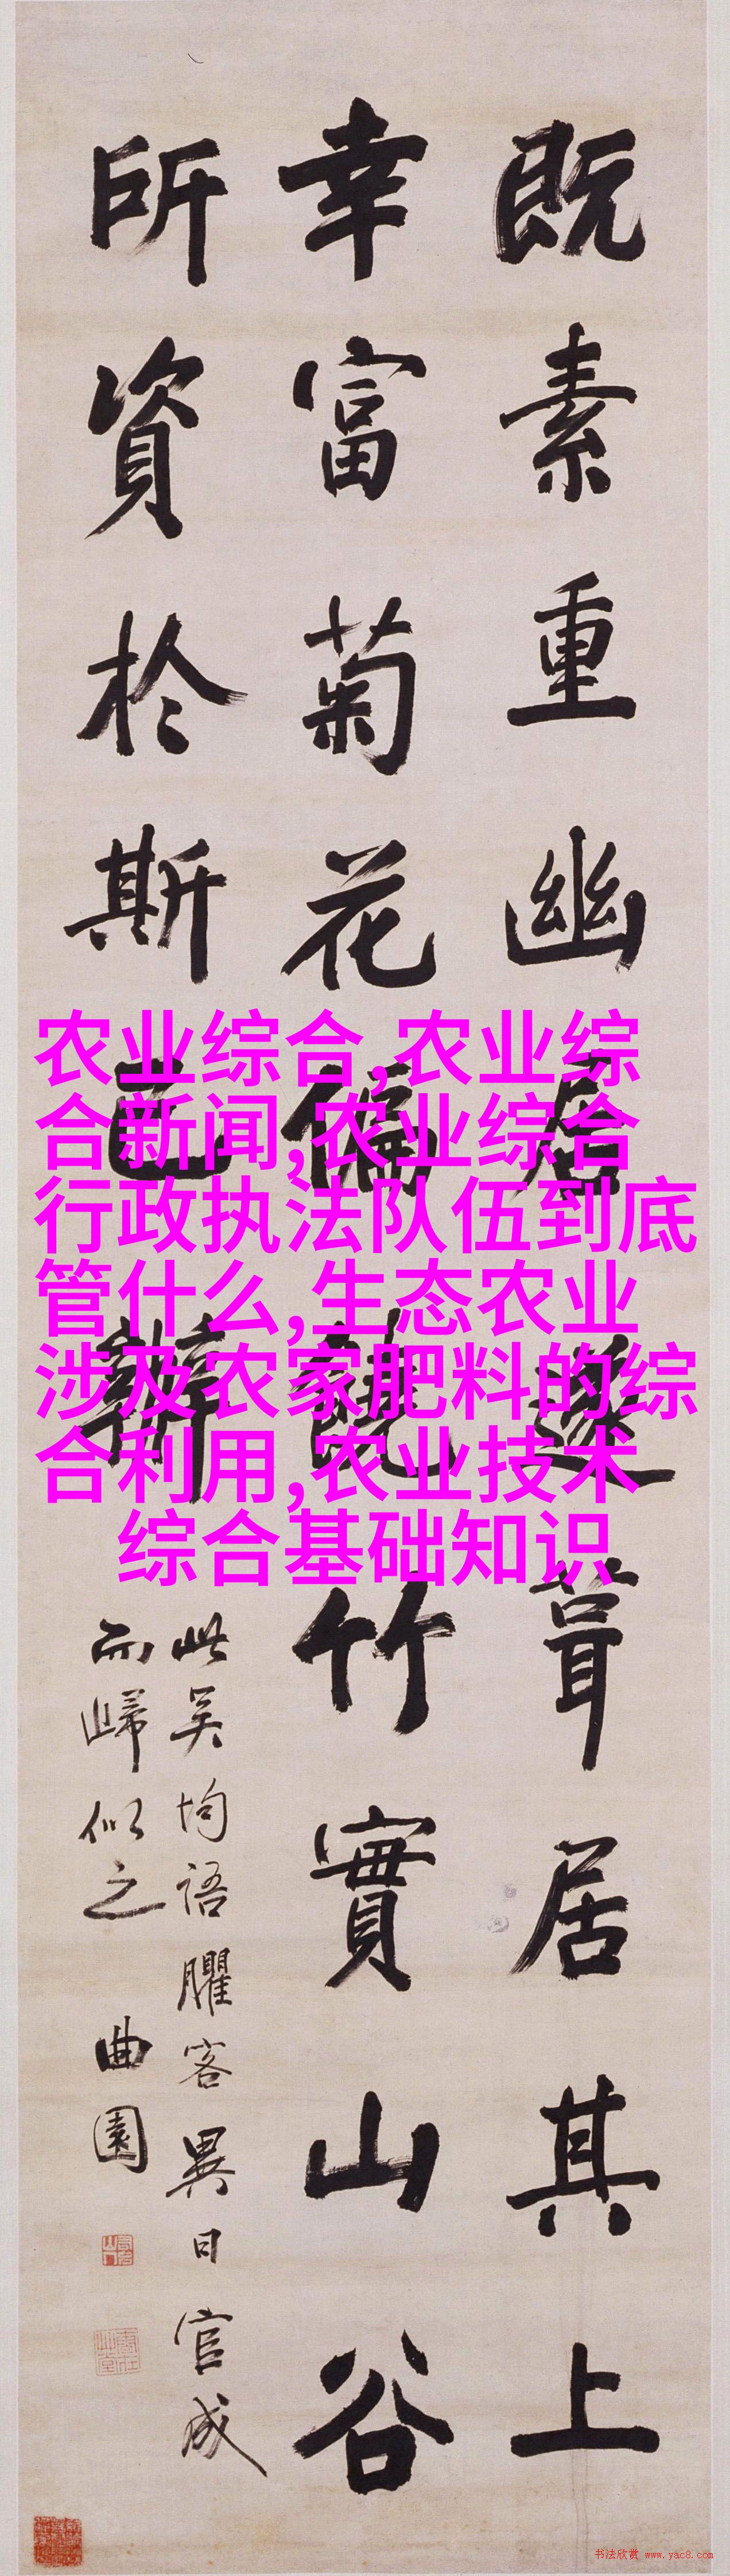 既素重幽居遂葺居其上
幸富菊花偏饒竹實山谷
所資於斯已辦
此吴均語臞客異日官成
而歸似之 曲園
农业综合,农业综
合新闻,农业综合
行政执法队伍到底
管什么,生态农业
涉及农家肥料的综
合利用,农业技术
综合基础知识
书法欣赏 www.yac8.com